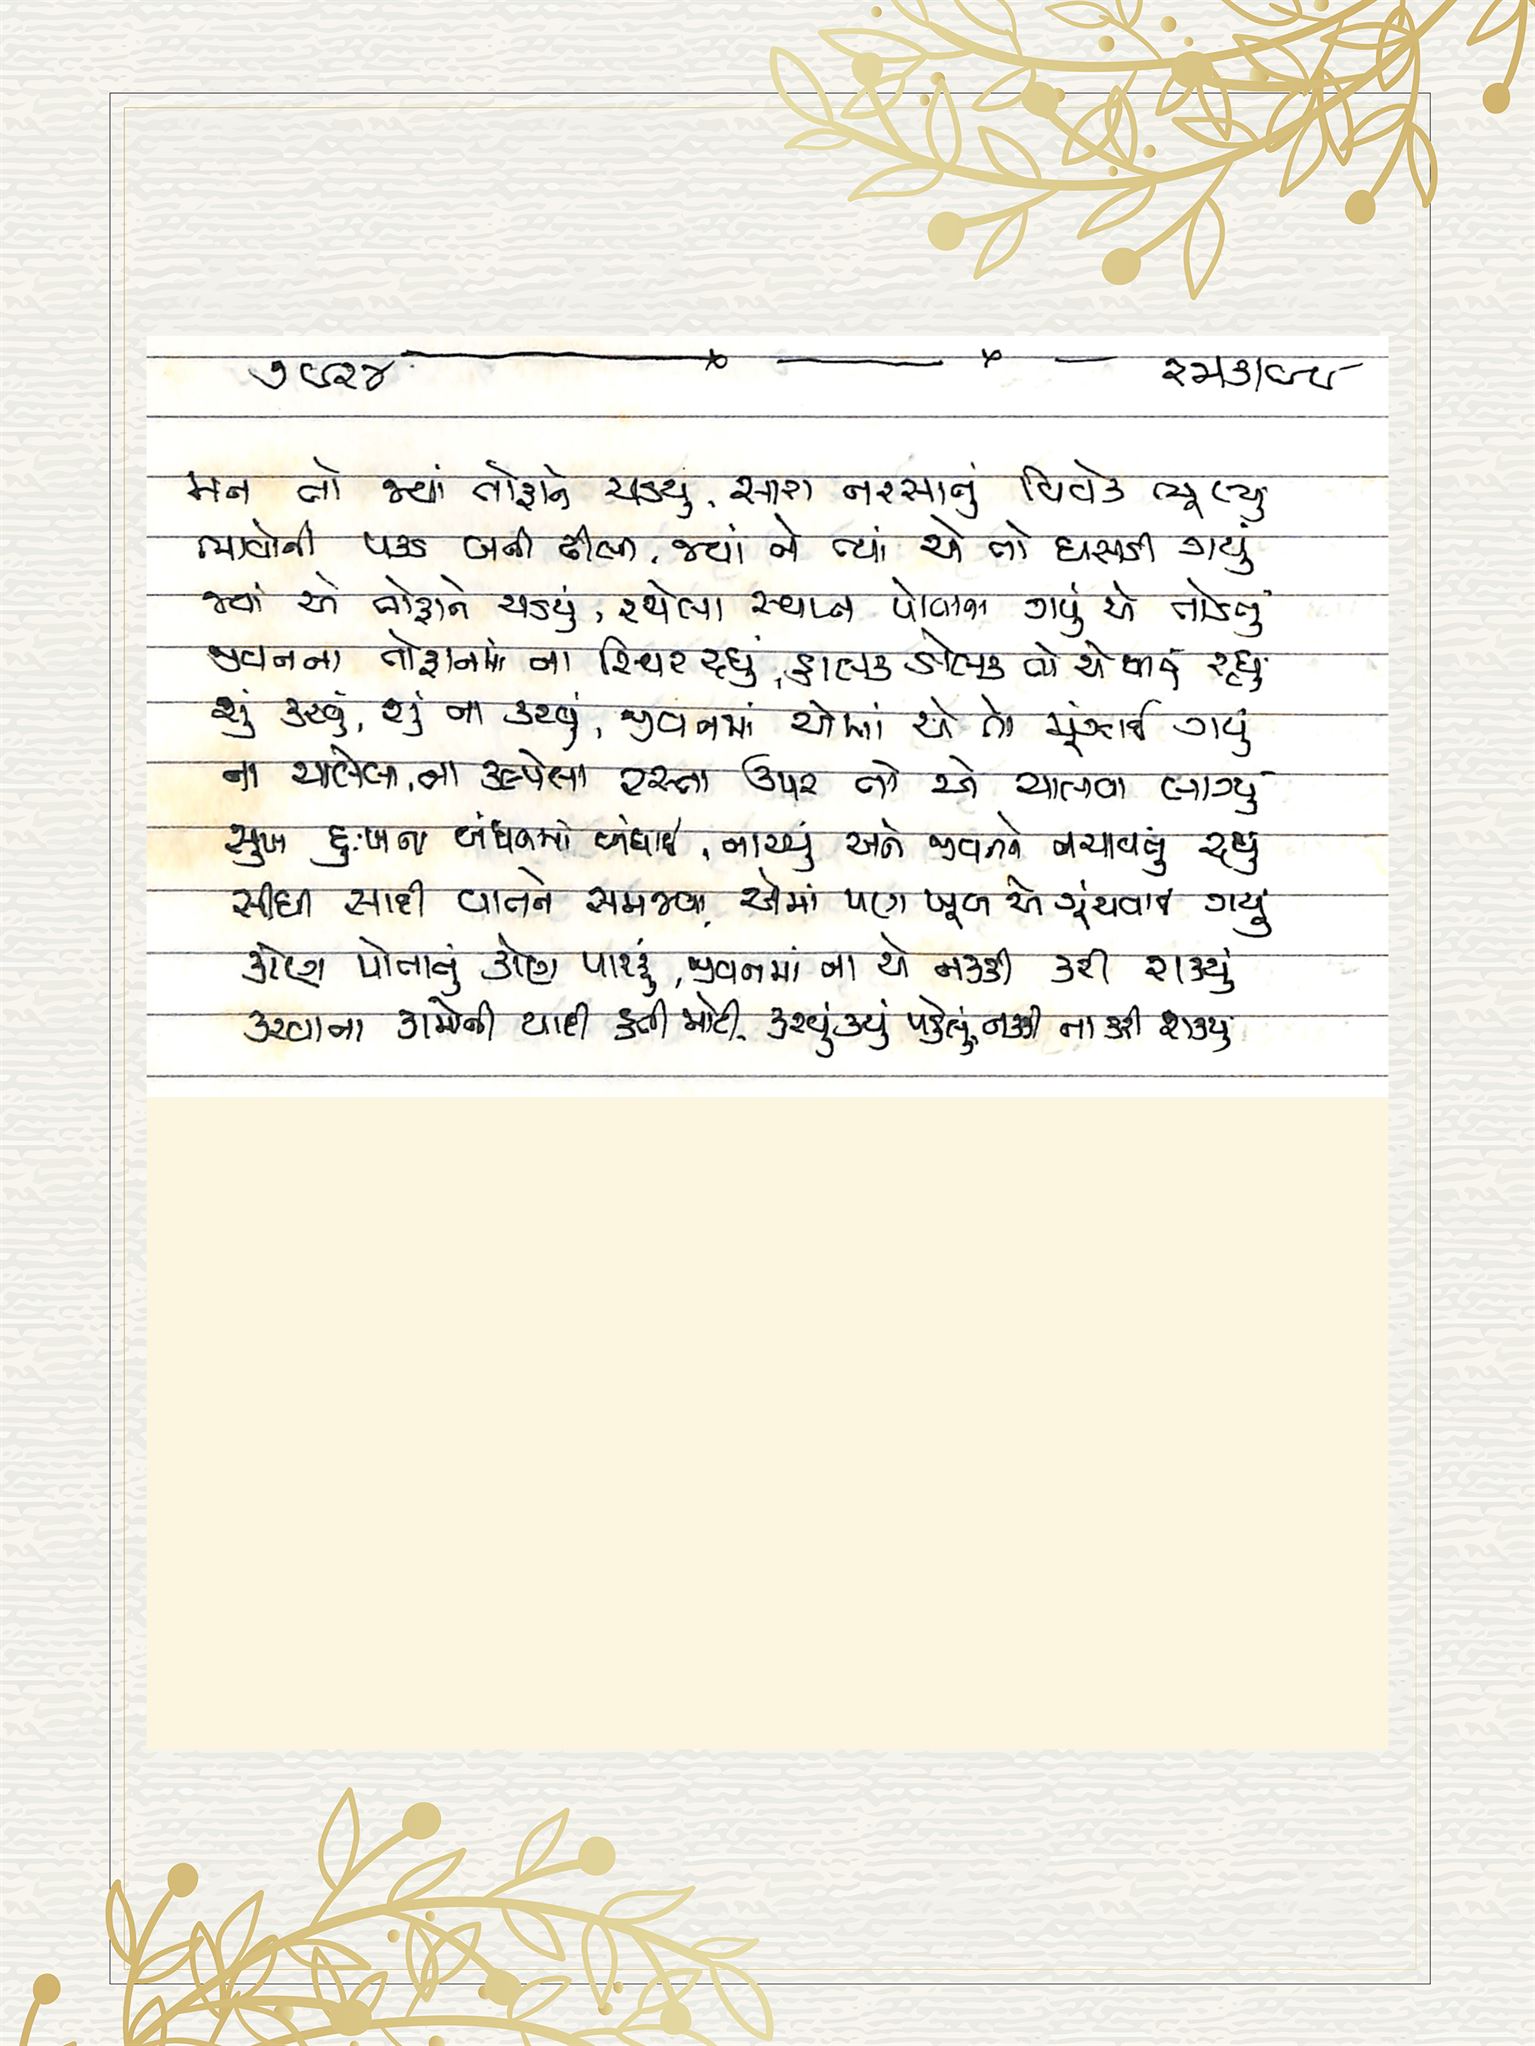 ૭૯૨૪
મન તો જ્યાં તોફાને ચડયું, સારા નરસાનું વિવેક ભૂલ્યું
ભાવોની પકડ બની ઢીલી, જ્યાં ને ત્યાં એ તો ઘસડાઈ ગયું
જ્યાં એ તોફાને ચડયું, રચેલા સ્થાન પોતાના ગયું એ તોડતું
જીવનના તોફાનમાં ના સ્થિર રહ્યું, હાલક ડોલક તો એ થાતું રહ્યું
શું કરવું, શું ના કરવું, જીવનમાં એમાં એ તો મૂંઝાઈ ગયું
ના ચાલેલા, ના કલ્પેલા રસ્તા ઉપર તો એ ચાલવા લાગ્યું
સુખ દુઃખના બંધનમાં બંધાઈ, નાચ્યું અને જીવનને નચાવતું રહ્યું
સીધી સાદી વાતને સમજવા, એમાં પણ ખૂબ એ ગૂંચવાઈ ગયું
કોણ પોતાનું કોણ પારકું, જીવનમાં ના એ નક્કી કરી શક્યું
કરવાના કામોની યાદી હતી મોટી, કરવું કયું પહેલું, નક્કી ના કરી શક્યું